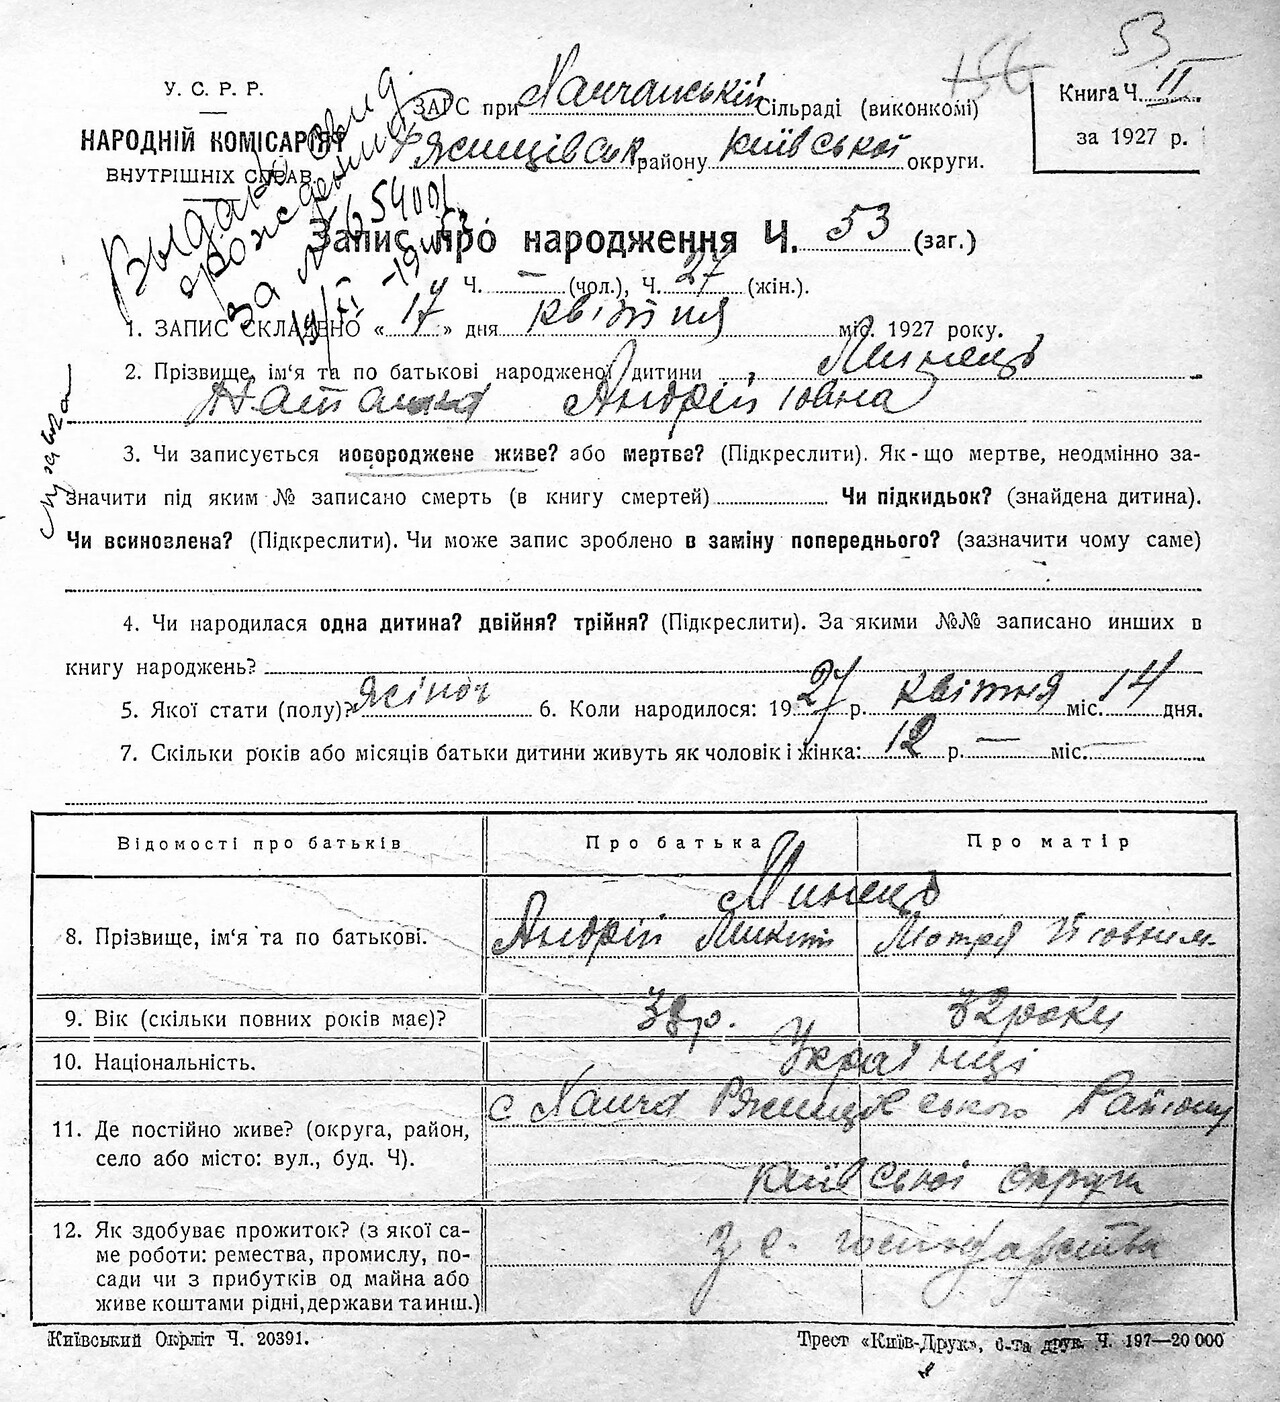 53
156
У. С. Р. Р.
НАРОДНІЙ КОМІСАРІЯТ
ВНУТРІШНІХ СПРАВ.
ЗАГС при Ханчанській Сільраді (виконкомі)
Ржищівськ району Київської округи.
Книга Ч. II
за 1927 р.
Выдано свид
о рождении
за № 654001
19/VI-1953
Запис про народження Ч. 53 (заг.)
Ч. — (чол.), Ч. 27 (жін.).
1. ЗАПИС СКЛАДЕНО « 17 » дня квітня міс. 1927 року.
2. Прізвище, ім'я та по батькові народженої дитини Минець
Наталка Андріївна
3. Чи записується новороджене живе? або мертве? (Підкреслити). Як-що мертве, неодмінно за-
значити під яким № записано смерть (в книгу смертей) Чи підкидьок? (знайдена дитина).
Чи всиновлена? (Підкреслити). Чи може запис зроблено в заміну попереднього? (зазначити чому саме)
4. Чи народилася одна дитина? двійня? трійня? (Підкреслити). За якими №№ записано инших в
книгу народжень?
5. Якої стати (полу)? Жіноч 6. Коли народилося: 1927 р. квітня міс. 14 дня.
7. Скільки років або місяців батьки дитини живуть як чоловік і жінка: 12 р. — міс. —
Відомості про батьків
Про батька
Про матір
8. Прізвище, ім'я та по батькові.
Минець
Андрій Микит
Мотря
9. Вік (скільки повних років має)?
38 р.
32 роки
10. Національність.
Українці
11. Де постійно живе? (округа, район,
село або місто: вул., буд. Ч).
с Ханча Ржищівського Району
Київської округи
12. Як здобуває прожиток? (з якої са-
ме роботи: ремества, промислу, по-
сади чи з прибутків од майна або
живе коштами рідні, держави та инш.)
З с. господарства
Київський Окрліт Ч. 20391.
Трест «Київ-Друк», 6-та друк. Ч. 197—20 000